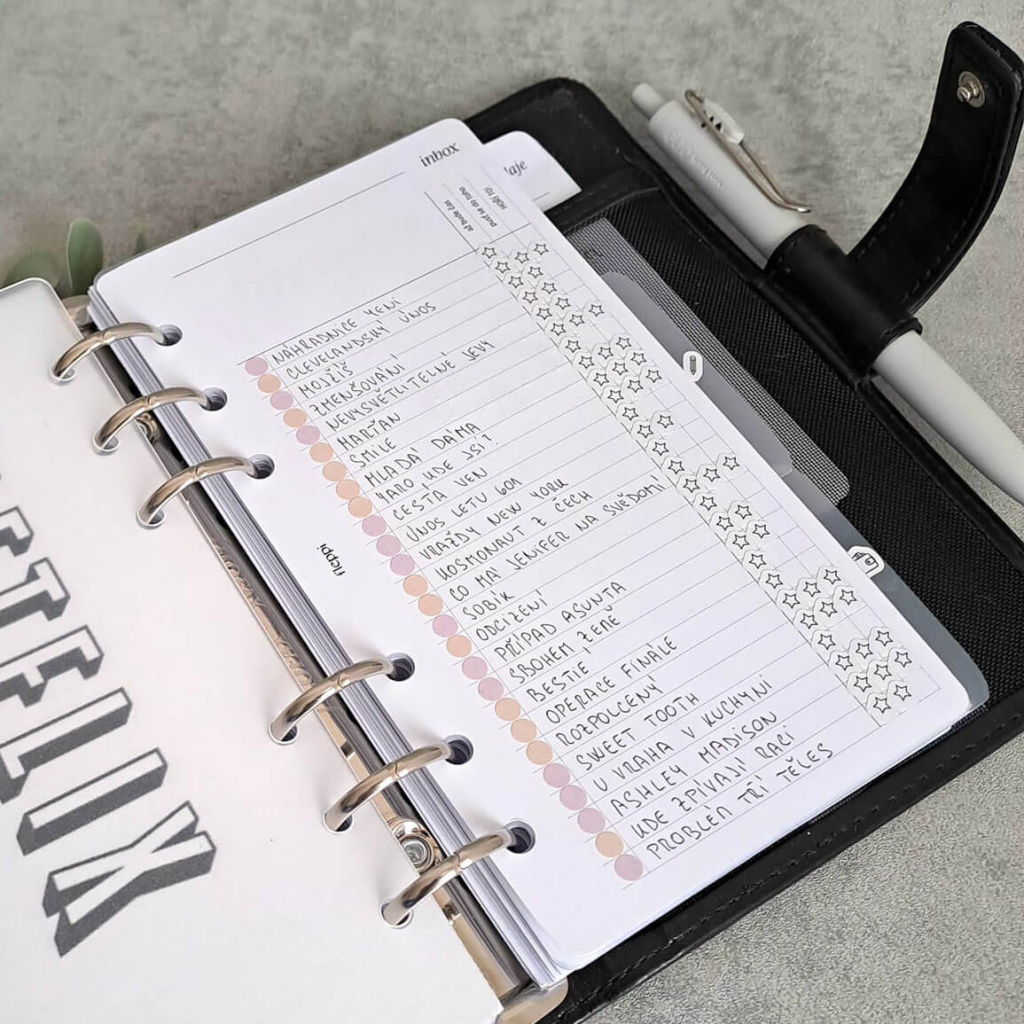 inbox
taje
až bude čas
pusť se do toho
HOŘÍ TO!
NÁHRADNICE YENI
CLEVELANDSKÝ ÚNOS
MOJŽÍŠ
ZMENŠOVÁNÍ
NEVYSVĚTLITELNÉ JEVY
MARŤAN
SMILE
MLADÁ DÁMA
YARO KDE JSI?
CESTA VEN
ÚNOS LETU 601
VRAŽDY NEW YORK
KOSMONAUT Z ČECH
CO MÁ JENIFER NA SVĚDOMÍ
SOBÍK
ODCIZENÍ
PŘÍPAD ASUNTA
SBOHEM, ZEMĚ
BESTIE
OPERACE FINÁLE
ROZPOLCENÝ
SWEET TOOTH
U VRAHA V KUCHYNI
ASHLEY MADISON
KDE ZPÍVAJÍ RACI
PROBLÉM TŘÍ TĚLES
fleppi
ETFLIX